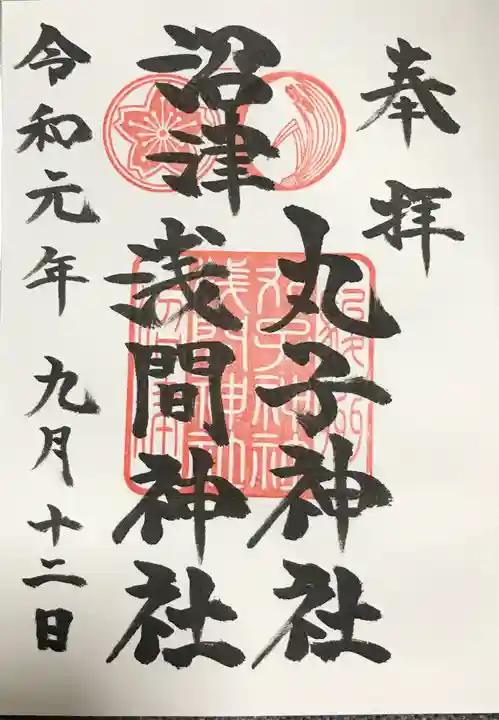 奉拝
沼津
丸子神社
浅間神社
令和元年九月十二日